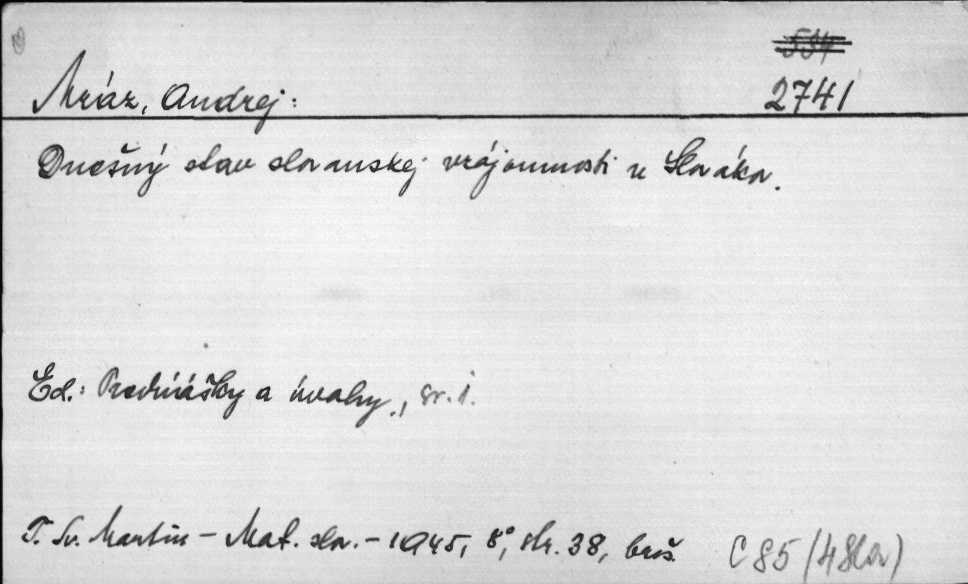 534
Mráz, Andrej: 2741
Dnešný stav slovanskej vzájomnosti u Slovákov.
Ed.: Prednášky a úvahy, sv. 1.
T. Sv. Martin - Mat. slov. - 1945, 8°, str. 38, brož. C 85 (4 Slov)